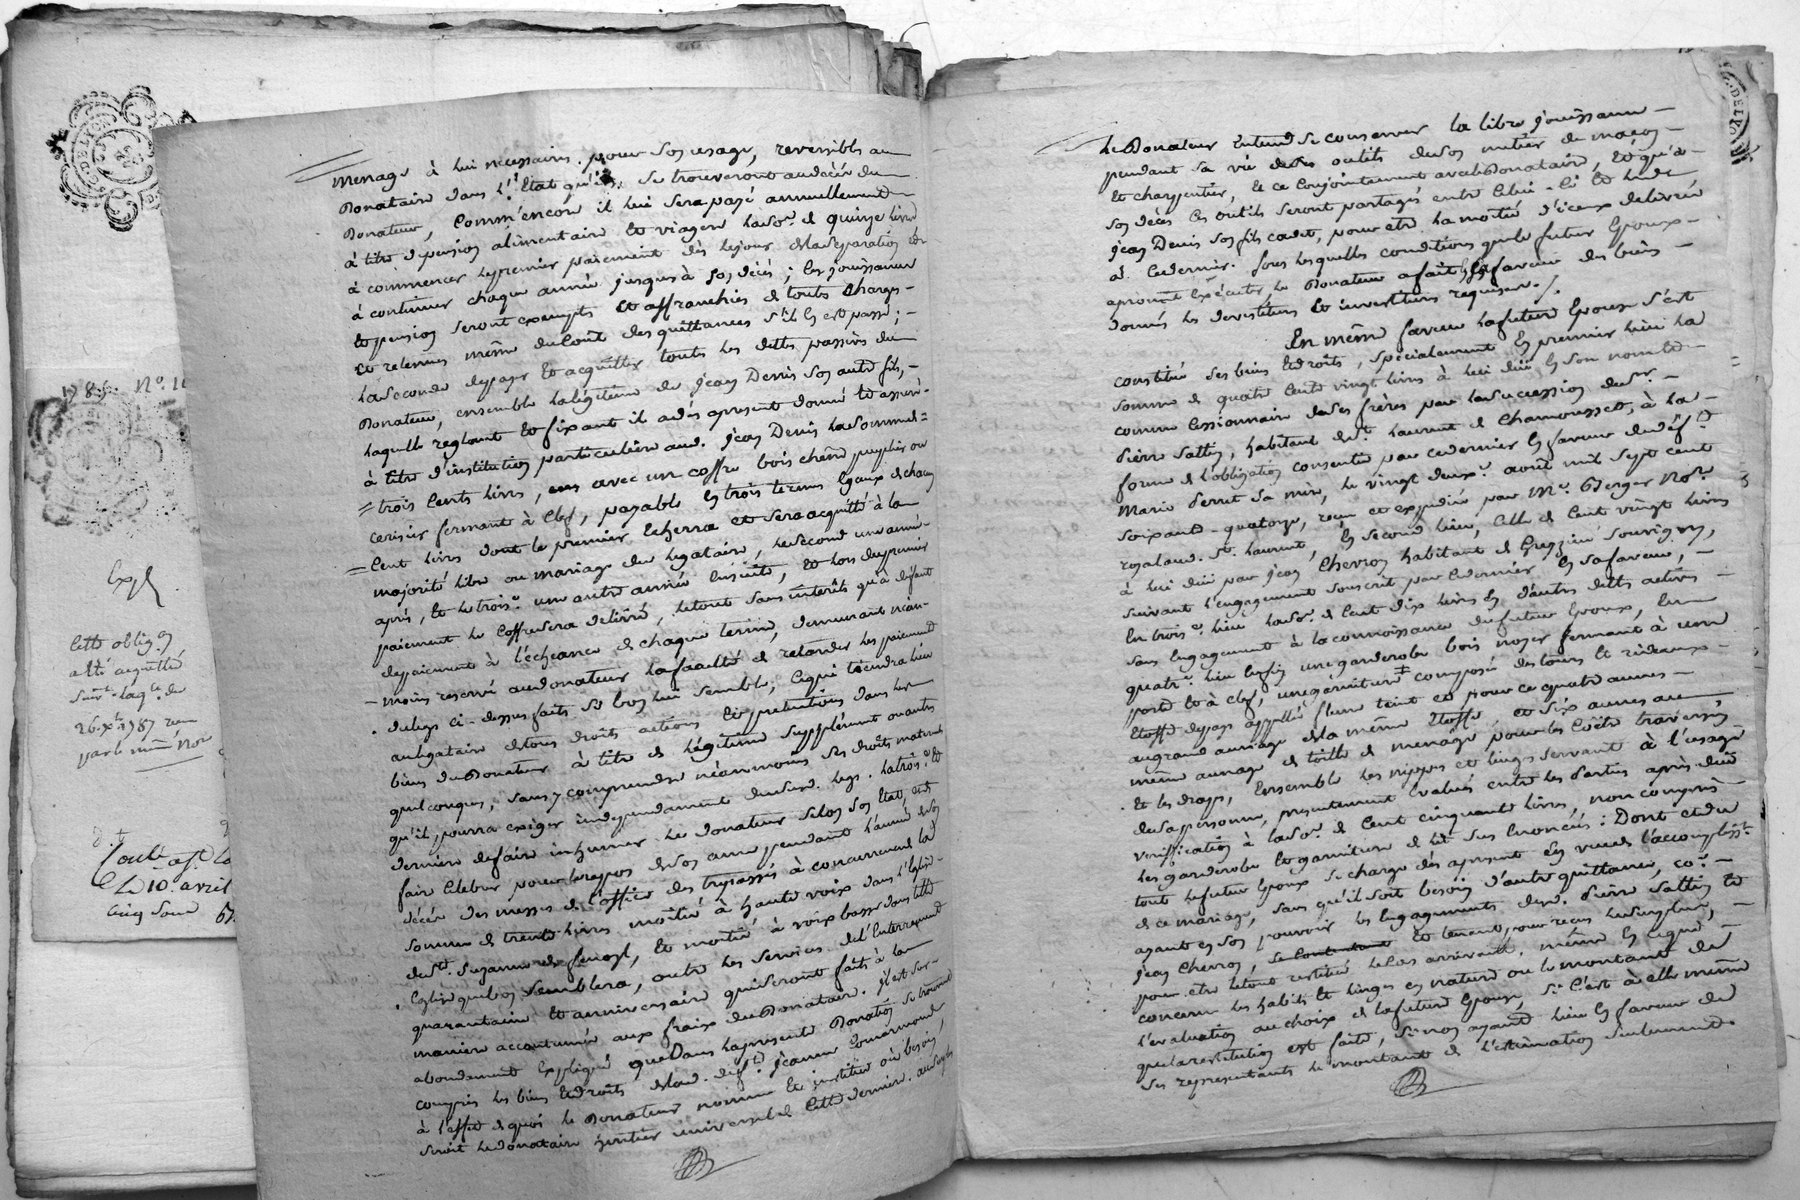 1785. No. 11
Exp.
Cette oblig.on
a été acquittée
suivt. la q.ce du
26. Xbre 1787 reçu
par le même Nore
le 10. avril
cinq sous
menage à lui necessaires pour son usage, reversibles au
Donataire dans l'Etat qu'ils se trouveront au décès du
Donateur, comm'encore il lui sera payé annuellement
à titre de pension alimentaire et viagere la so.e de quinze livres
à commencer le premier paiement dès le jour de la separation et
à continuer chaque année jusques à son décès; les jouissances
et pension seront exempts et affranchies de toutes charges
et retenues même du coût des quittances s'il en est passé;
la seconde de payer et acquitter toutes les dettes passives du
Donateur, ensemble la légitime de Jean Denis son autre fils,
laquelle reglant et fixant il a dès apresent donné et assuré
à titre d'institution particuliere aud. Jean Denis la somme de
trois cents livres, avec un coffre bois chêne peuplier ou
cerisier fermant à clef, payable en trois termes egaux de chacun
cent livres dont le premier echerra et sera acquitté à la
majorité libre ou mariage du legataire, le second une année
après, et le trois.e une autre année ensuite, et lors du premier
paiement le coffre sera delivré, le tout sans intérêts qu'à défaut
de paiement à l'écheance de chaque terme, demeurant néan-
moins reservé au donateur la faculté de retarder les paiements
du legs ci-dessus faits si bon lui semble, ce qui tiendra lieu
au legataire de tous droits actions et pretentions dans les
biens du Donateur à titre de légitime supplément ou autres
quelconques, sans y comprendre néanmoins ses droits maternels
qu'il pourra exiger independament du susd. legs. la trois.e et
derniere de faire inhumer le donateur selon son Etat, et de
faire celebrer pour le repos de son ame pendant l'année de son
décès des messes de l'office des trepassés à concurrence de la
somme de trente livres moitié à haute voix dans l'Eglise
de St. Suzanne, et moitié à voix basse dans telle
Eglise que bon semblera, outre les services de l'Enterrement
quarantaine et anniversaire qui seront faits à la
maniere accoutumée aux fraix du Donataire. il est sur-
abondament expliqué que dans la presente Donation se trouvent
compris les biens et droits de lad. def.te Jeanne
à l'effet de quoi le Donateur nomme et institue où besoin
seroit le donataire heritier universel de cette derniere. au surplus
Le Donateur entend se conserver la libre jouissance
pendant sa vie des outils de son metier de maçon
et charpentier, et ce conjointement avec le Donataire, et qu'à
son décès les outils seront partagés entre celui-ci et led.
Jean Denis son fils cadet, pour etre la moitié d'iceux delivrée
à ce dernier. sous lesquelles conditions que le futur Epoux
a promis executer le Donateur a fait en sa faveur des biens
donnés les devestitures et investitures requises./.
En même faveur la future Epouse s'est
constitué ses biens et droits, specialement en premier lieu la
somme de quatre cents vingt livres à lui düe en son nom et
comme cessionnaire de ses frères par la succession de sr.
Pierre Sattin, habitant de St. Laurent de Chamousset, à la
forme de l'obligation consentie par ce dernier en faveur de def.te
Marie Perret sa mère, le vingt deuxe. août mil sept cent
soixante-quatorze, reçue et expediée par Me. Berger Nore.
royal aud. St. Laurent, En second lieu, celle de cent vingt livres
à lui düe par Jean Chevron habitant de Grezieu Souvigny,
suivant l'engagement souscrit par ce dernier en sa faveur,
En trois.e lieu la so.e de cent dix livres en d'autres dettes actives
sans engagement à la connoissance du futur Epoux, En
quatr.e lieu enfin une garderobe bois noyer fermant à une
porte et à clef, une garniture ‡ composée des tours et rideaux
Etoffe de pays appellée fleur teint et pour ce quatre aunes
au grand aunage de la même Etoffe et six aunes au
même aunage de toille de menage pour les Coëtre traversin
et les draps, Ensemble les nippes et linges servant à l'usage
de sa personne, presentement evalués entre les Parties après due
verification à la so.e de cent cinquante livres, non compris
les garderobe et garniture de lit sus enoncées: Dont et du
tout le futur Epoux se charge dès apresent en vue de l'accomplisst.
de ce mariage, sans qu'il soit besoin d'autre quittance, co.e
ayant en son pouvoir les engagements desd. Pierre Sattin et
Jean Chevron, et tenant pour reçu le surplus,
pour etre le tout restitué le cas arrivant, même en ce qui
concerne les habits et linges en nature ou le montant de
l'evaluation au choix de la future Epouse, si c'est à elle même
que la restitution est faite, sinon ayant lieu en faveur de
ses representants le montant de l'estimation seulement.